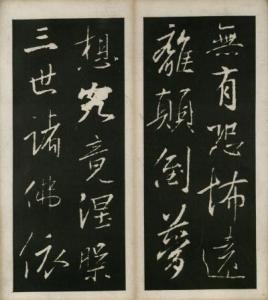 無有恐怖遠
離顛倒夢
想究竟涅槃
三世諸佛依